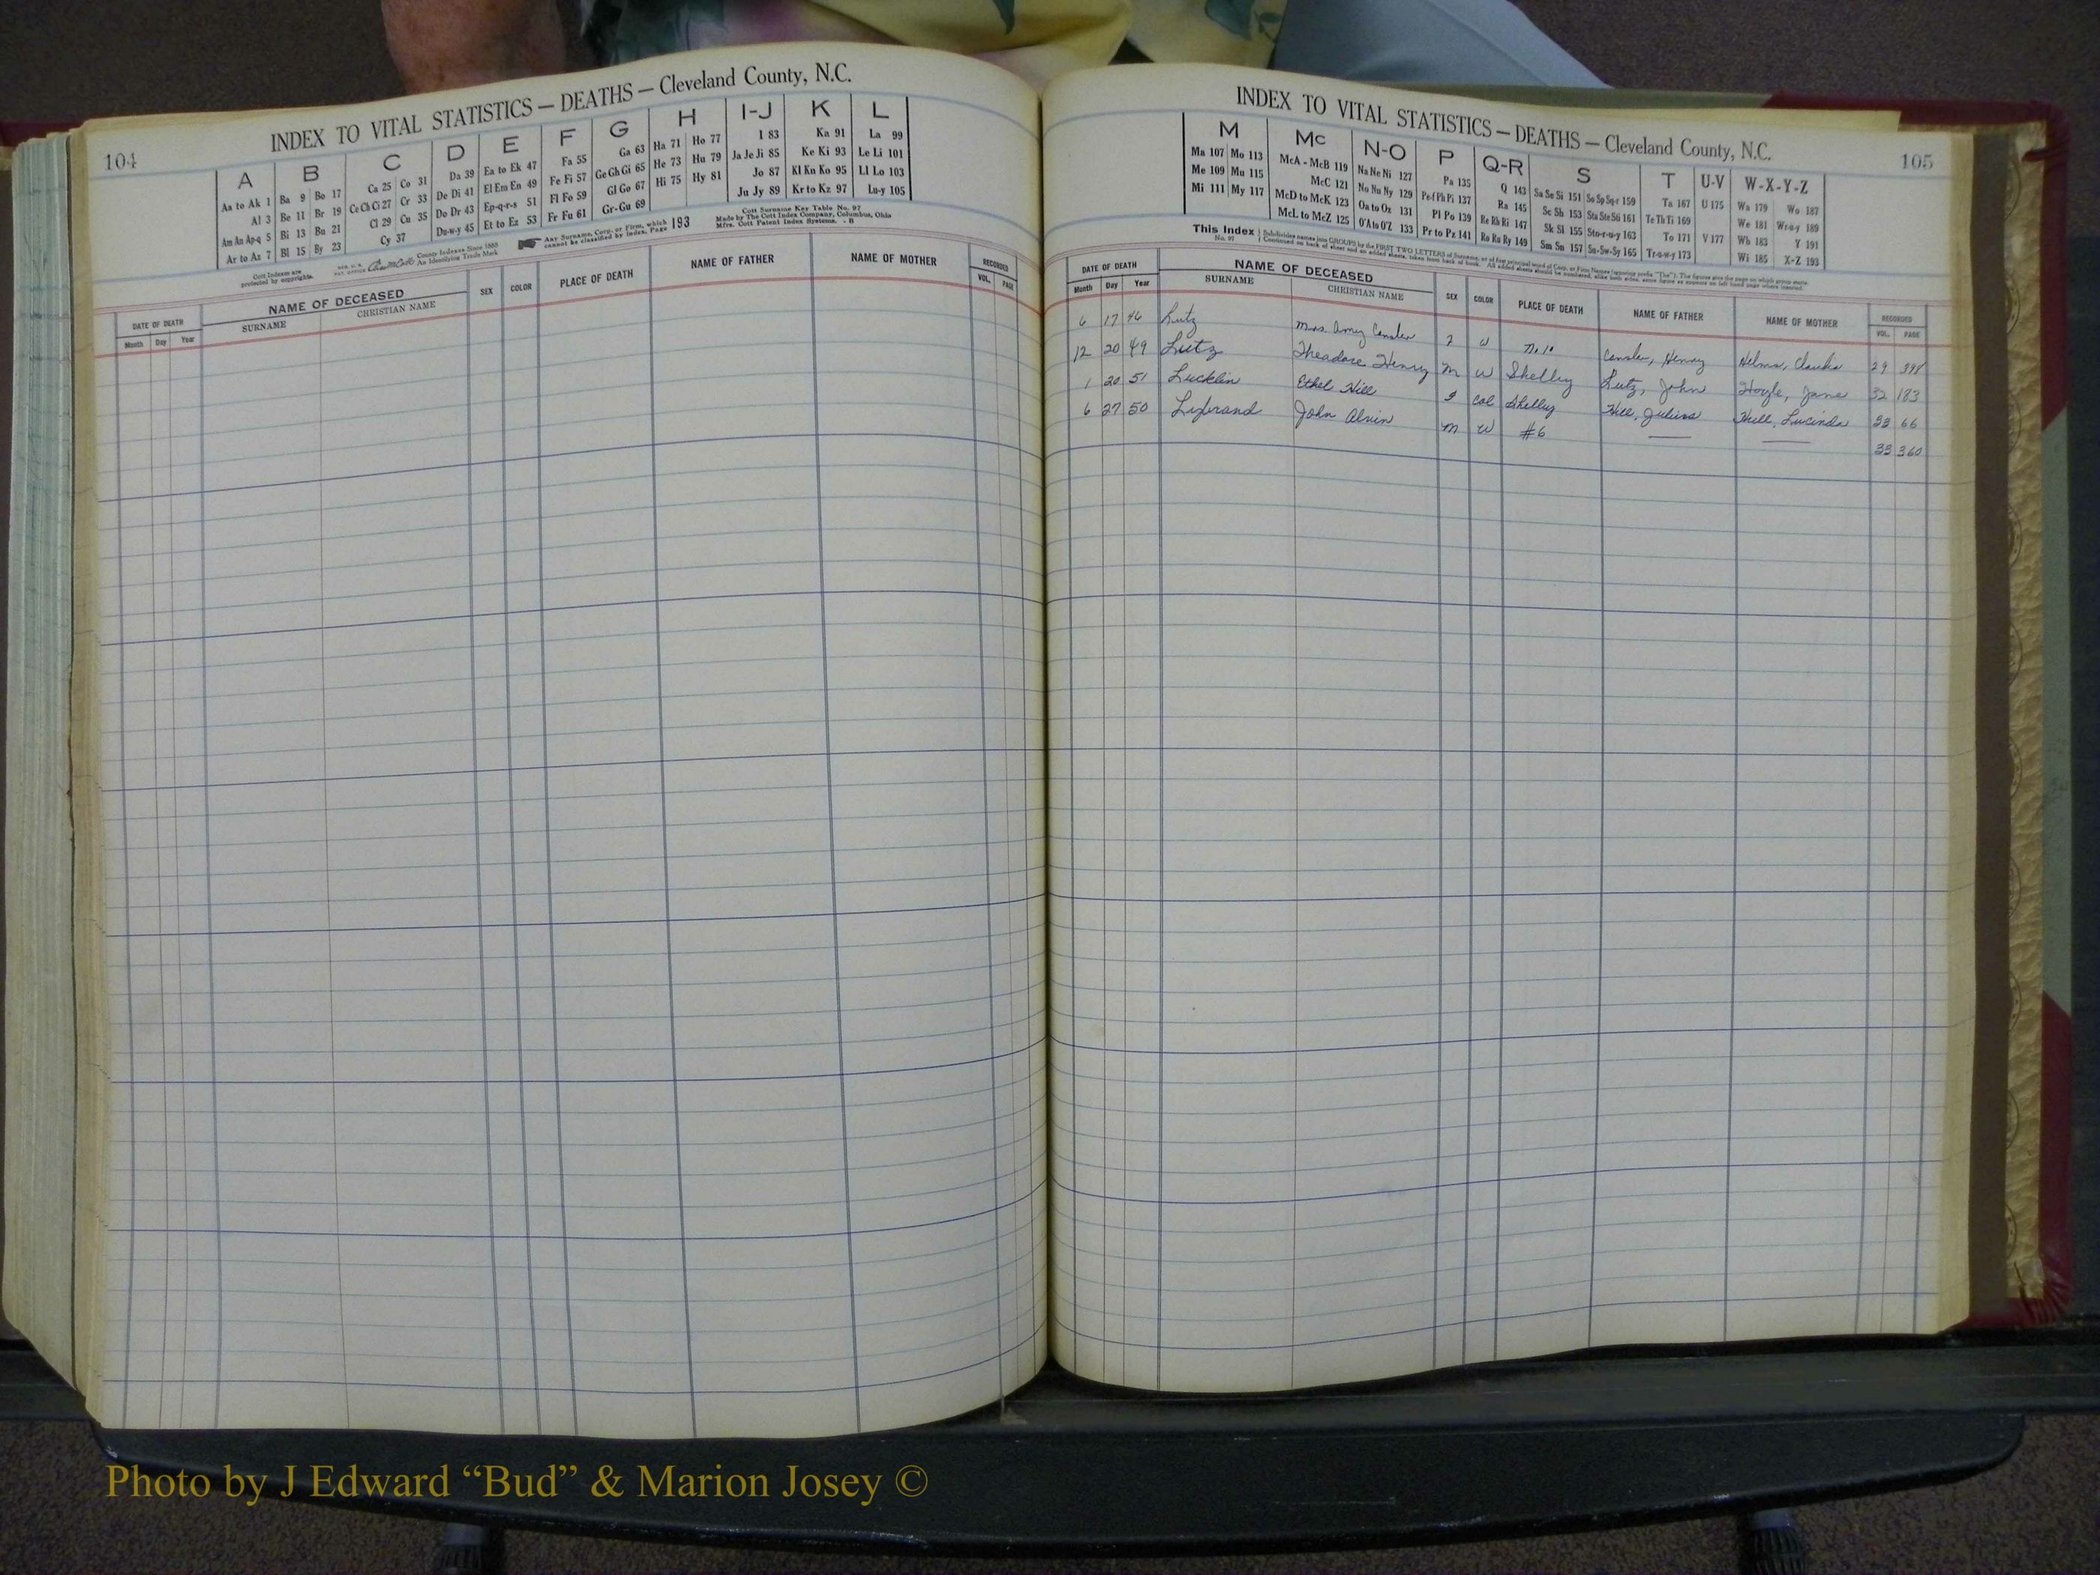 104
INDEX TO VITAL STATISTICS — DEATHS — Cleveland County, N.C.
A B C D E F G H I-J K L
Aa to Ak 1 Ba 9 Bo 17 Ca 25 Co 31 Da 39 Ea to Ek 47 Fa 55 Ga 63 Ha 71 Ho 77 I 83 Ka 91 La 99
Al 3 Be 11 Br 19 Ce Ch Ci 27 Cr 33 De Di 41 El Em En 49 Fe Fi 57 Ge Gh Gi 65 He 73 Hu 79 Ja Je Ji 85 Ke Ki 93 Le Li 101
Am An Ap-q 5 Bi 13 Bu 21 Cl 29 Cu 35 Do Dr 43 Ep-q-r-s 51 Fl Fo 59 Gl Go 67 Hi 75 Hy 81 Jo 87 Kl Kn Ko 95 Ll Lo 103
Ar to Az 7 Bl 15 By 23 Cy 37 Du-w-y 45 Et to Ez 53 Fr Fu 61 Gr-Gu 69 Ju Jy 89 Kr to Kz 97 Lu-y 105
Cott Indexes are protected by copyrights.
County Indexes Since 1888
An Identifying Trade Mark
Any Surname, Corp. or Firm, which cannot be classified by Index, Page 193
Cott Surname Key Table No. 97
Made by The Cott Index Company, Columbus, Ohio
Mfrs. Cott Patent Index Systems. - B
DATE OF DEATH NAME OF DECEASED SEX COLOR PLACE OF DEATH NAME OF FATHER NAME OF MOTHER RECORDED
Month Day Year SURNAME CHRISTIAN NAME VOL. PAGE
INDEX TO VITAL STATISTICS — DEATHS — Cleveland County, N.C.
105
M Mc N-O P Q-R S T U-V W-X-Y-Z
Ma 107 Mo 113 McA - McB 119 Na Ne Ni 127 Pa 135 Q 143 Sa Se Si 151 So Sp Sq-r 159 Ta 167 U 175 Wa 179 Wo 187
Me 109 Mu 115 McC 121 No Nu Ny 129 Pe f Ph Pi 137 Ra 145 Sc Sh 153 Sta Ste Sti 161 Te Th Ti 169 We 181 Wr-u-y 189
Mi 111 My 117 McD to McK 123 Oa to Oz 131 Pl Po 139 Re Rh Ri 147 Sk Sl 155 Sto-r-u-y 163 To 171 V 177 Wh 183 Y 191
McL to McZ 125 O'A to O'Z 133 Pr to Pz 141 Ro Ru Ry 149 Sm Sn 157 Su-Sw-Sy 165 Tr-u-w-y 173 Wi 185 X-Z 193
This Index No. 97 Subdivides names into GROUPS by the FIRST TWO LETTERS of Surname, or of first principal word of Corp. or Firm Names (ignoring prefix "The"). The figures give the page on which group starts.
Continued on back of sheet and on added sheets, taken from back of book. All added sheets should be numbered, alike both sides, same figure as appears on left hand page where inserted.
DATE OF DEATH NAME OF DECEASED SEX COLOR PLACE OF DEATH NAME OF FATHER NAME OF MOTHER RECORDED
Month Day Year SURNAME CHRISTIAN NAME VOL. PAGE
6 17 46 Lutz Mrs. Amy Cansler F W No 10 Cansler, Henry Helms, 29 398
12 20 49 Lutz Theadore Henry M W Shelby Lutz, John Hoyle, Jane 32 183
1 20 51 Lucklin Ethel Hill F Col Shelby Hill, Julius Hill, Lucinda 33 66
6 27 50 Lybrand John Alvin M W #6 — — 33 360
Photo by J Edward “Bud” & Marion Josey ©